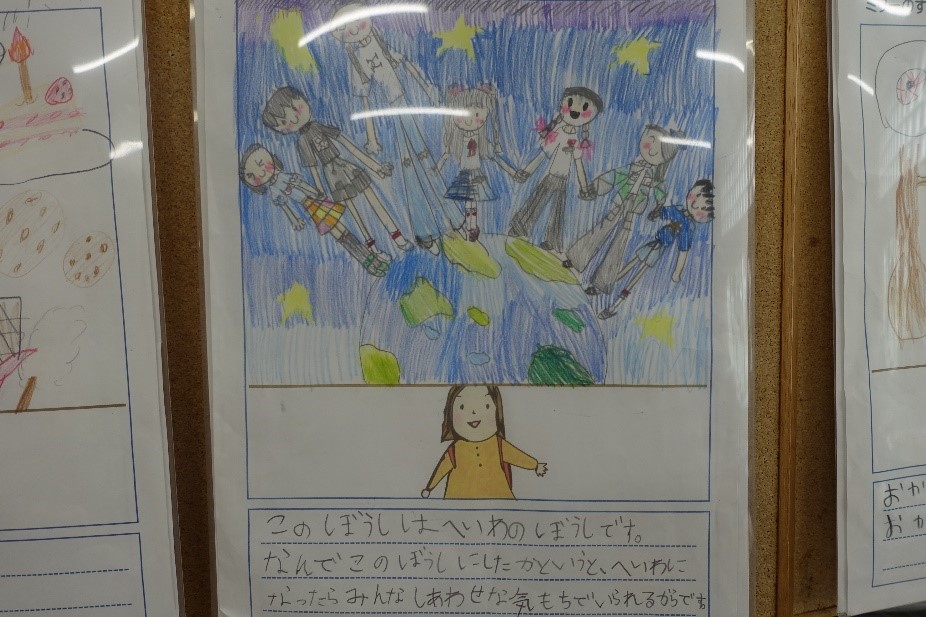 このぼうしはへいわのぼうしです。
なんでこのぼうしにしたかというと、へいわに
なったらみんなしあわせな気もちでいられるからです
おか
おか